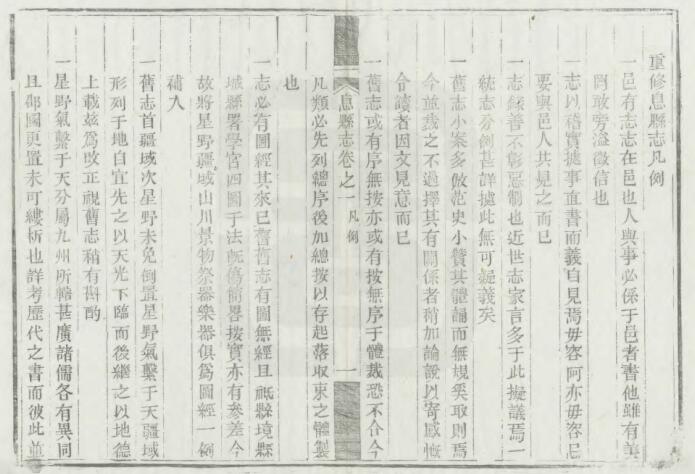 重修息縣志凡例
一邑有志志在邑也人與事必係于邑者書他雖有美
罔敢旁溢徵信也
一志以稽實據事直書而義自見焉毋容阿亦毋容忌
要與邑人共見之而已
一志錄善不彰惡制也近世志家言多于此擬議焉一
統志分例甚詳據此無可擬義矣
一舊志小案多倣范史小贊其體韻而無規奚取則焉
今並裁之不過擇其有關係者稍加論說以寄感慨
令讀者因文見意而已
一舊志或有序無按亦或有按無序于體裁恐不合今
凡類必先列總序後加總按以存起落収束之體製
也
息縣志卷之一 凡例 一
一志必有圖經其來已舊舊志有圖無經且祇縣境縣
城縣署學宮四圖于法旣傷簡畧按實亦有參差今
故將星野疆域山川景物祭器樂器俱為圖經一例
補入
一舊志首疆域次星野未免倒置星野氣繫于天疆域
形列于地自宜先之以天光下臨而後繼之以地德
上載兹為改正視舊志稍有斟酌
一星野氣繫于天分屬九州所轄甚廣諸儒各有異同
且郡國更置未可縷析也詳考歷代之書而彼此並